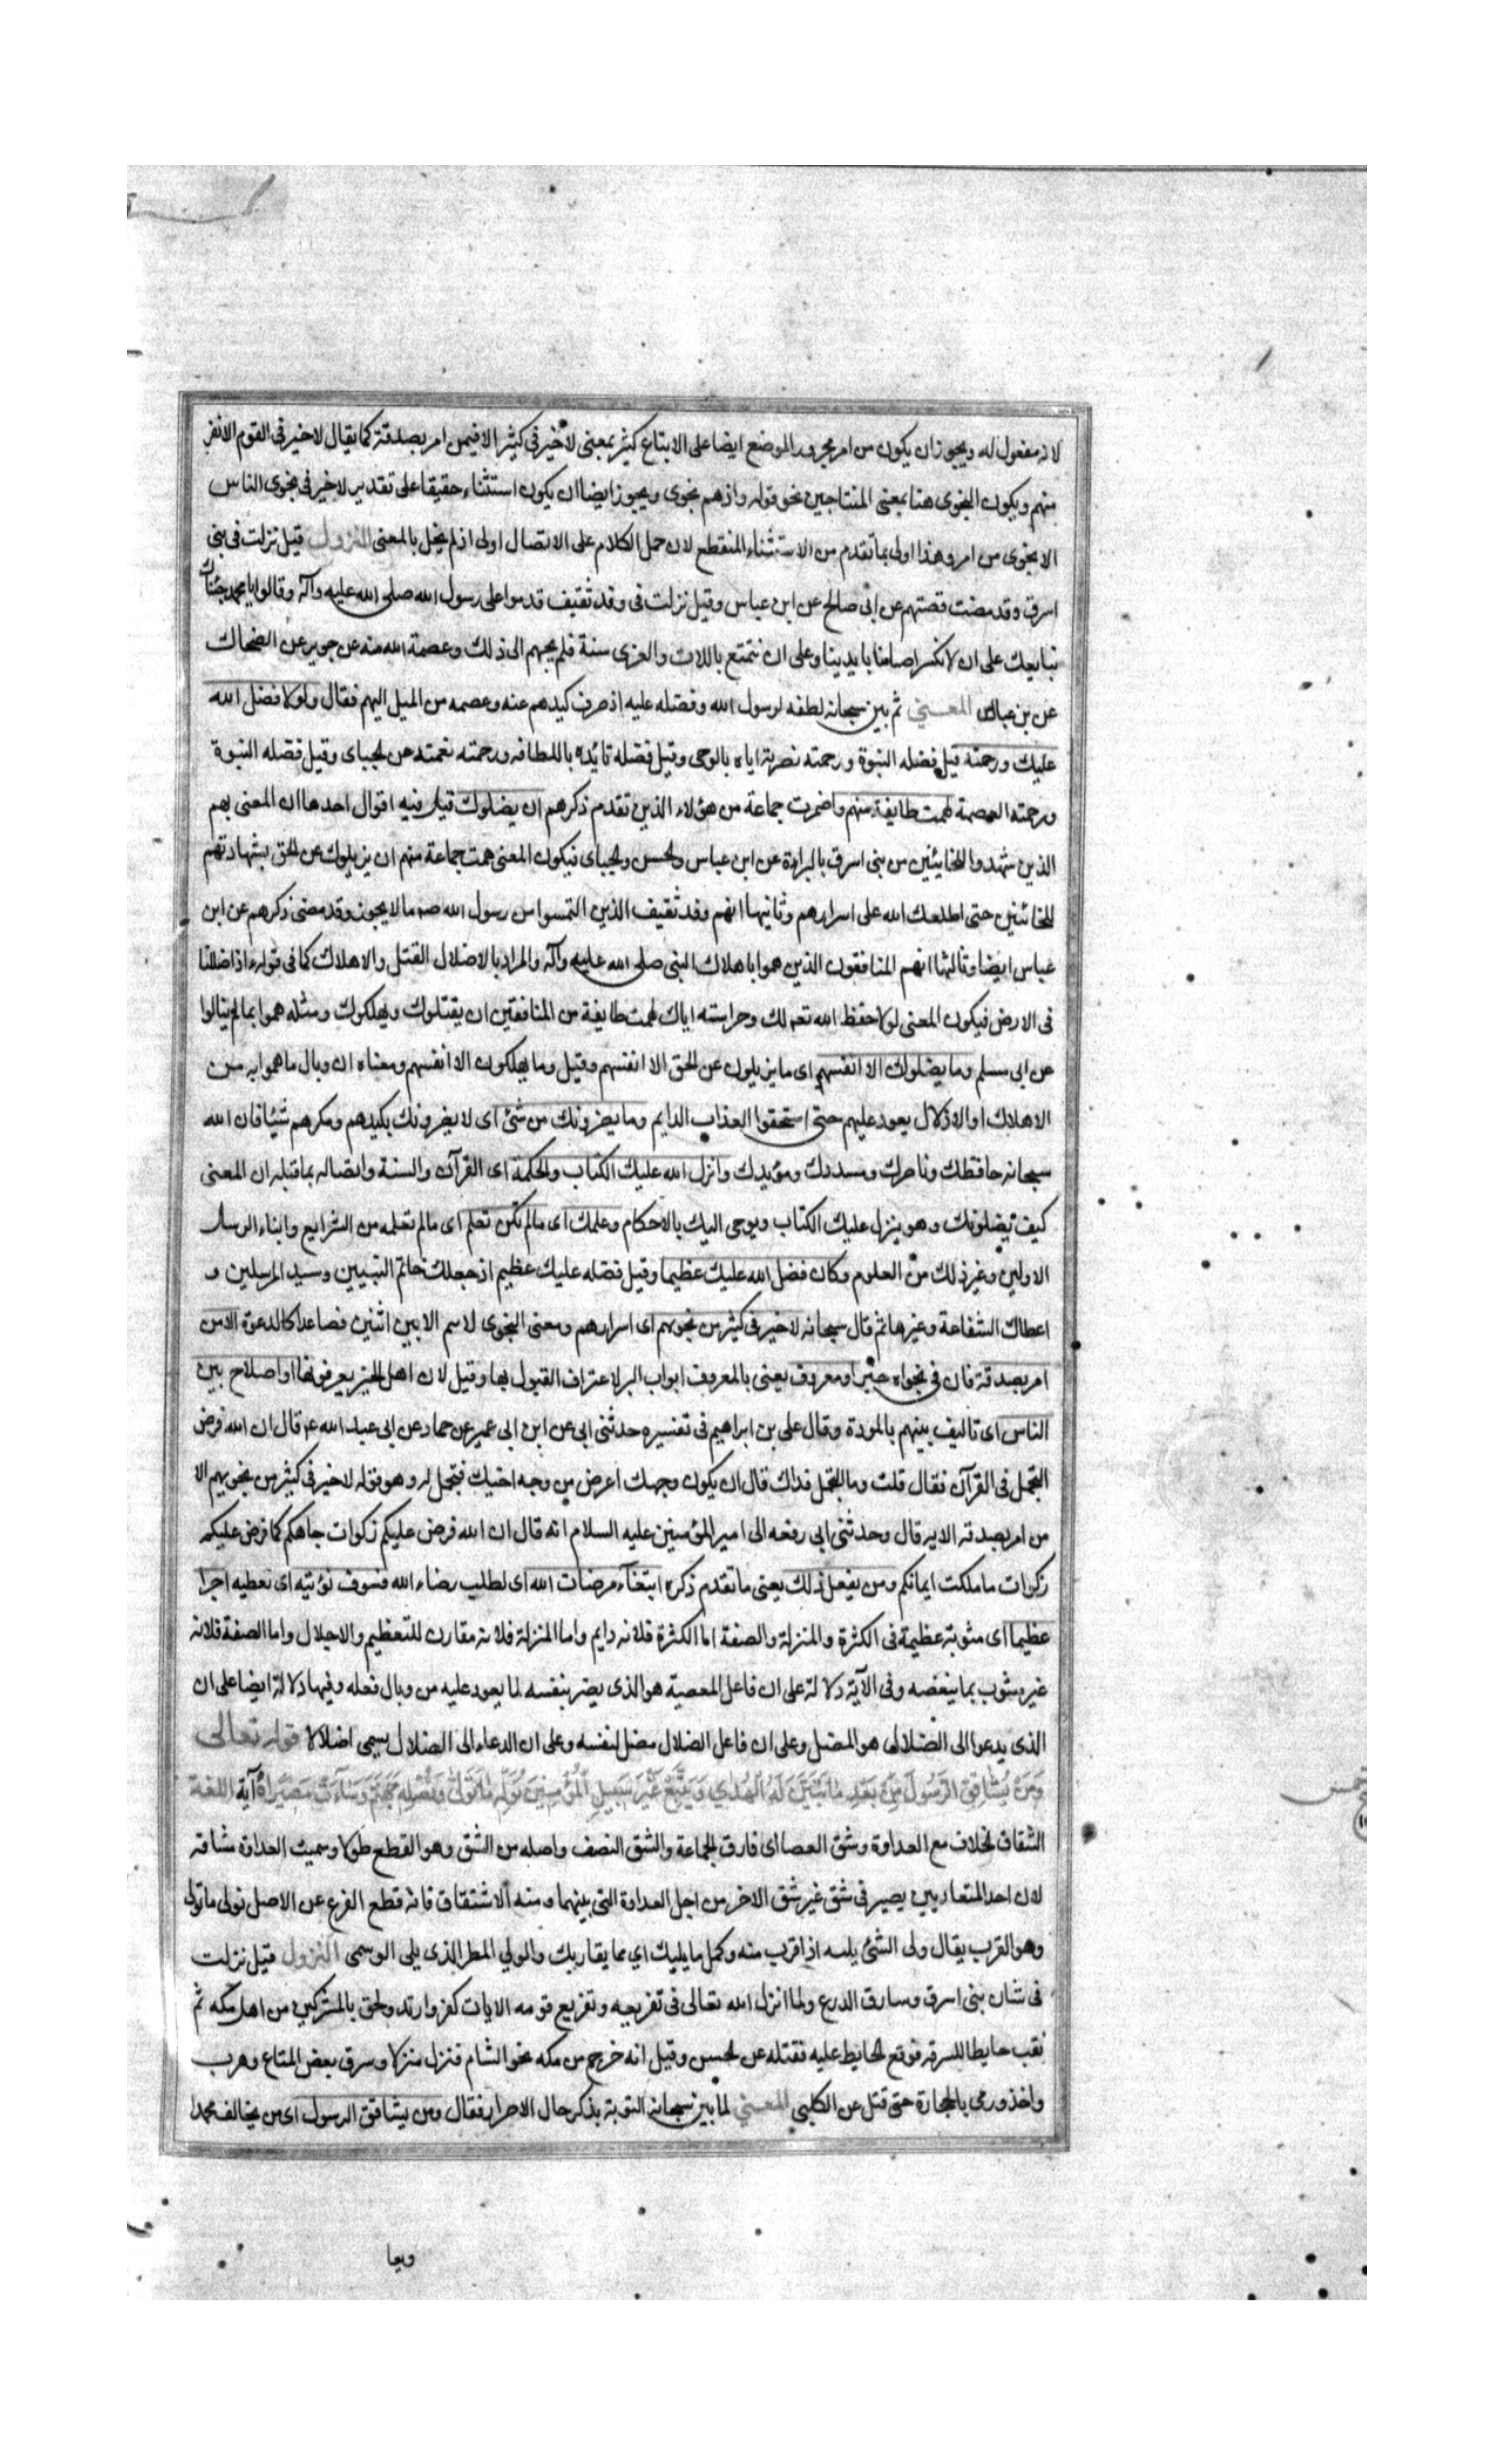 لانه مفعول له ويجوز ان يكون من امر مجرور الموضع ايضا على الاتباع كثير بمعنى لا خير في كثير الا فيمن امر بصدقة كما يقال لا خير في القوم الا نفر
منهم ويكون النجوى هنا بمعنى المتناجين نحو قوله واذهم نجوى ويجوز ايضا ان يكون استثناء حقيقا على تقدير لا خير في نجوى الناس
الا نجوى من امر وهذا اولى مما تقدم من الاستثناء المنقطع لان حمل الكلام على الاتصال اولى اذا لم يخل بالمعنى النزول قيل نزلت في بني
اسرق وقد مضت قصتهم عن ابي صالح عن ابن عباس وقيل نزلت في وفد ثقيف قدموا على رسول الله صلى الله عليه وآله وقالوا يا محمد جئناك
نبايعك على ان لا نكسر اصنامنا بايدينا وعلى ان نتمتع باللات والعزى سنة فلم يجبهم الى ذلك وعصمه الله منه عن جويبر عن الضحاك
عن بن عباس المعنى ثم بين سبحانه لطفه لرسول الله وفضله عليه اذ صرف كيدهم عنه وعصمه من الميل اليهم فقال ولولا فضل الله
عليك ورحمته قيل فضله النبوة ورحمته نصرته اياه بالوحى وقيل فضله تائيده بالطافه ورحمته نعمته عن الجبائى وقيل فضله النبوة
ورحمته العصمة لهمت طايفة منهم واضمرت جماعة من هؤلاء الذين تقدم ذكرهم ان يضلوك قيل فيه اقوال احدها ان المعنى بهم
الذين شهدوا للخائنين من بني اسرق بالبراءة عن ابن عباس والحسن والجبائى فيكون المعنى همت جماعة منهم ان يزيلوك عن الحق بشهادتهم
للخائنين حتى اطلعك الله على اسرارهم وثانيها انهم وفد ثقيف الذين التمسوا من رسول الله صم ما لا يجوز وقد مضى ذكرهم عن ابن
عباس ايضا وثالثها انهم المنافقون الذين هموا باهلاك النبى صلى الله عليه وآله والمراد بالاضلال القتل والاهلاك كما في قوله ءاذا ضللنا
في الارض فيكون المعنى لولا حفظ الله تعه لك وحراسته اياك لهمت طايفة من المنافقين ان يقتلوك ويهلكوك ومثله هموا بما لم ينالوا
عن ابى مسلم وما يضلوك الا انفسهم اى ما يزيلون عن الحق الا انفسهم وقيل وما يهلكون الا انفسهم ومعناه ان وبال ما هموا به من
الاهلاك او الاذلال يعود عليهم حتى استحقوا العذاب الدايم وما يضرونك من شئ اى لا يضرونك بكيدهم ومكرهم شيئا فان الله
سبحانه حافظك وناصرك ومسددك ومؤيدك وانزل الله عليك الكتاب والحكمة اى القرآن والسنة واتصاله بما قبله ان المعنى
كيف يضلونك وهو ينزل عليك الكتاب ويوحى اليك بالاحكام وعلمك اى ما لم تكن تعلم اى ما لم تعلمه من الشرايع وانباء الرسل
الاولين وغير ذلك من العلوم وكان فضل الله عليك عظيما وقيل فضله عليك عظيم اذ جعلك خاتم النبيين وسيد المرسلين و
اعطاك الشفاعة وغيرها ثم قال سبحانه لا خير في كثير من نجويهم اى اسرارهم ومعنى النجوى لاسم الا بين اثنين فصاعدا كالدعوة الا من
امر بصدقة فان في نجواه خيرا ومعروف يعنى بالمعروف ابواب البر لاعتراف القبول بها وقيل لان اهل الخير يعرفونها او اصلاح بين
الناس اى تاليف بينهم بالمودة وقال على بن ابراهيم في تفسيره حدثنى ابى عن ابن ابى عمير عن حماد عن ابى عبد الله عم قال ان الله فرض
التجمل في القرآن فقال قلت وما التجمل فداك قال ان يكون وجهك اعرض من وجه اخيك فتجمل له وهو قوله لا خير في كثير من نجويهم الا
من امر بصدقة الايه قال وحدثنى ابى رفعه الى امير المؤمنين عليه السلام انه قال ان الله فرض عليكم زكوات جاهكم كما فرض عليكم
زكوات ما ملكت ايمانكم ومن يفعل ذلك يعنى ما تقدم ذكره ابتغآء مرضات الله اى لطلب رضاء الله فسوف نؤتيه اى نعطيه اجرا
عظيما اى مثوبة عظيمة في الكثرة والمنزلة والصفة اما الكثرة فلانه دايم واما المنزلة فلانه مقارن للتعظيم والاجلال واما الصفة فلانه
غير مشوب بما ينغصه وفي الآية دلالة على ان فاعل المعصية هو الذى يضر بنفسه لما يعود عليه من وبال فعله وفيها دلالة ايضا على ان
الذى يدعوا الى الضلال هو المضل وعلى ان فاعل الضلال مضل لنفسه وعلى ان الدعاء الى الضلال يسمى اضلالا قوله تعالى
وَمَنْ يُشَاقِقِ الرَّسُولَ مِنْ بَعْدِ مَا تَبَيَّنَ لَهُ الْهُدٰى وَيَتَّبِعْ غَيْرَ سَبِيلِ الْمُؤْمِنِينَ نُوَلِّهِ مَا تَوَلّٰى وَنُصْلِهِ جَهَنَّمَ وَسَآءَتْ مَصِيرًا آية اللغة
الشقاق الخلاف مع العداوة وشق العصا اى فارق الجماعة والشق النصف واصله من الشق وهو القطع طولا وسميت العداوة مشاقه
لان احد المتعاديين يصير في شق غير شق الاخر من اجل العداوة التى بينهما ومنه الاشتقاق فانه قطع الفرع عن الاصل نولى ما تولى
وهو القرب يقال ولى الشئ يليه اذا قرب منه وكل ما يليك اي مما يقاربك والولي المطر الذى يلى الوسمى النزول قيل نزلت
في شان بنى اسرق وسارق الدرع ولما انزل الله تعالى في تقريعه وتقريع قومه الايات كفر وارتد ولحق بالمشركين من اهل مكه ثم
نقب حايطا للسرقه فوقع الحايط عليه فقتله عن الحسن وقيل انه خرج من مكه نحو الشام فنزل منزلا وسرق بعض المتاع وهرب
واخذ ورمى بالحجارة حتى قتل عن الكلبي المعنى لما بين سبحانه التوبة بذكر حال الاصرار فقال ومن يشاقق الرسول اى من يخالف محمدا